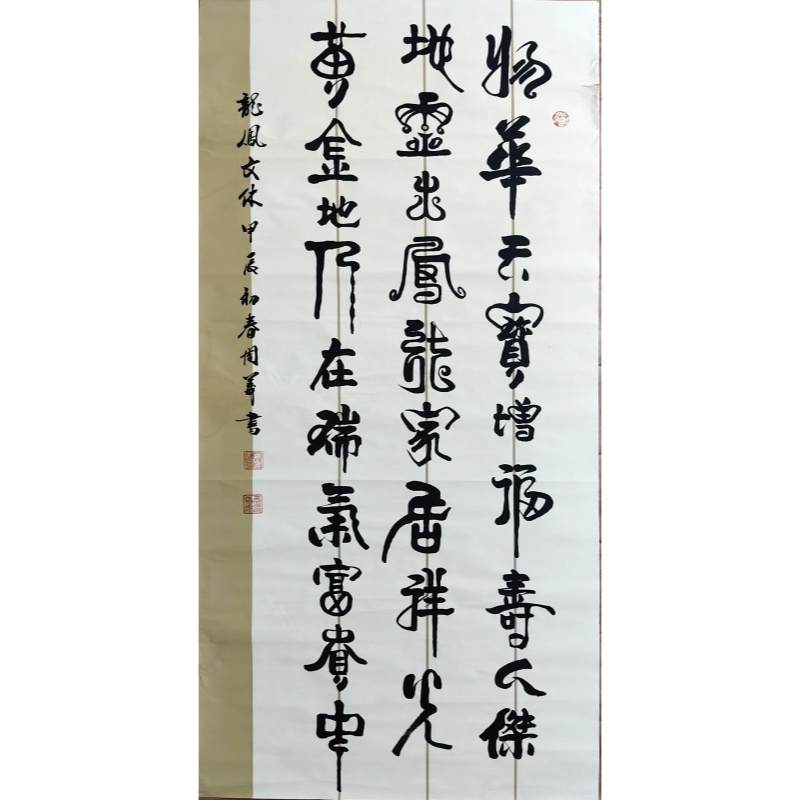 物華天寶增福壽人傑
地靈出鳳龍家居祥光
黄金地門在瑞氣富貴中
龍鳳文体甲辰初春周華書